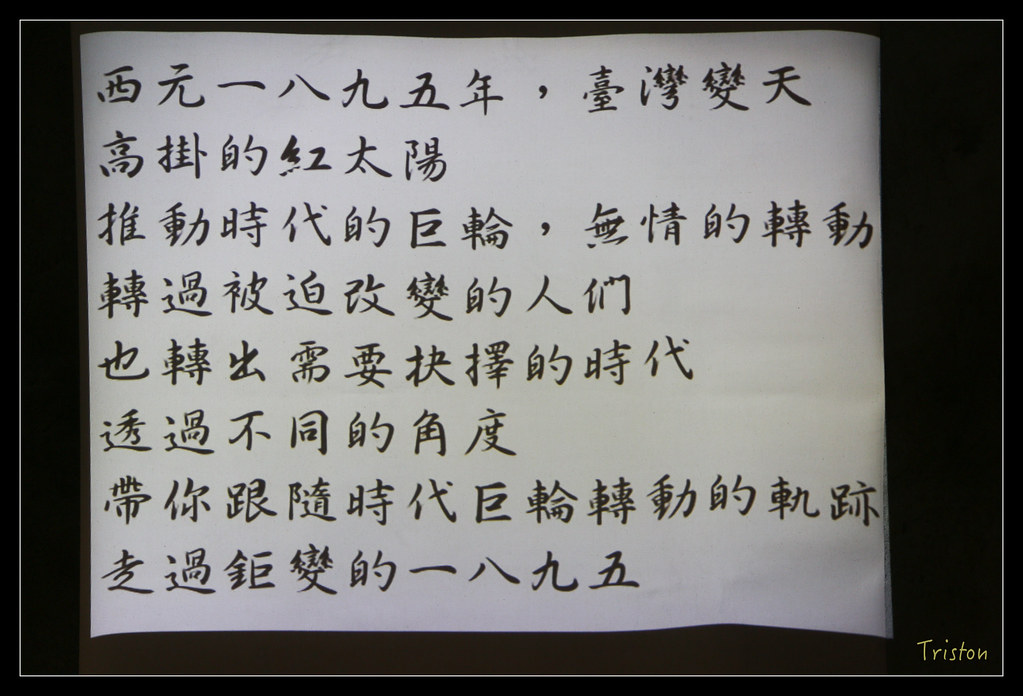 西元一八九五年，臺灣變天
高掛的紅太陽
推動時代的巨輪，無情的轉動
轉過被迫改變的人們
也轉出需要抉擇的時代
透過不同的角度
帶你跟隨時代巨輪轉動的軌跡
走過鉅變的一八九五
Triston